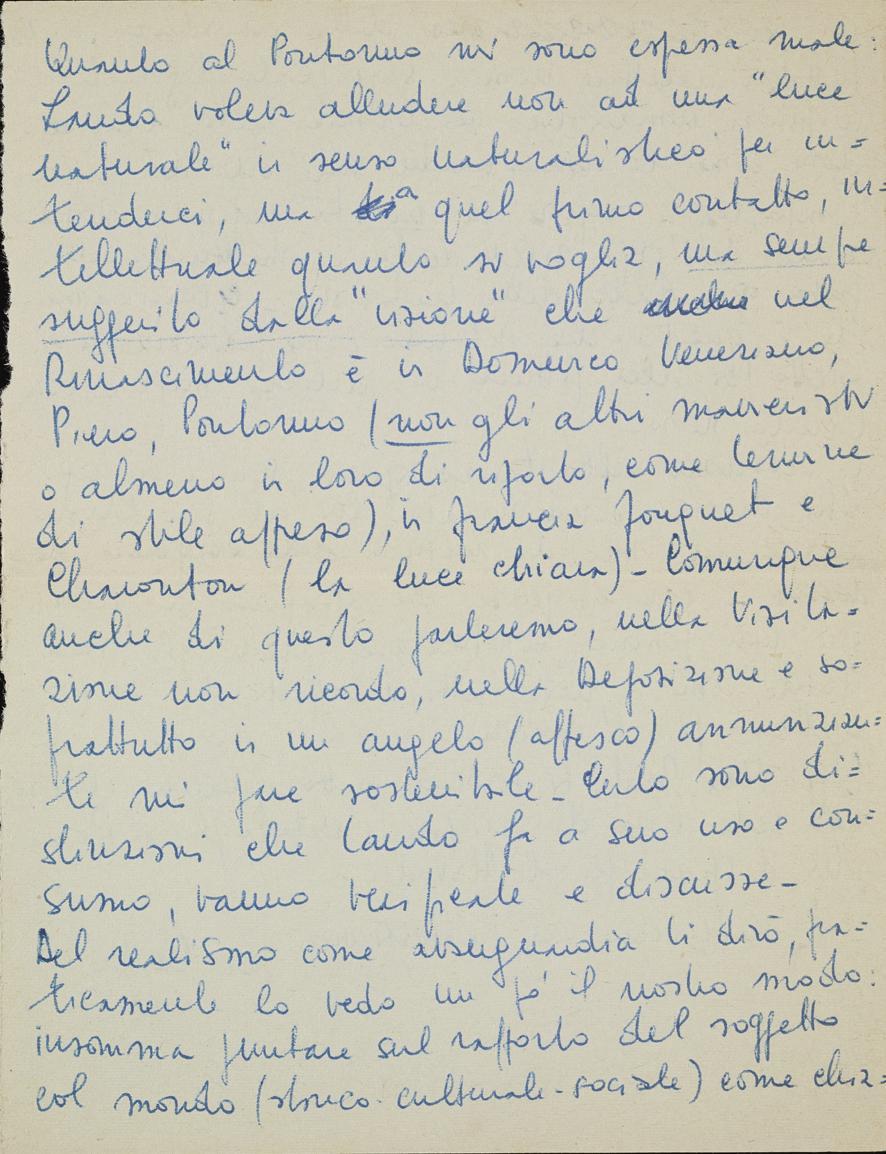 Quanto al Pontormo mi sono espressa male:
Lando voleva alludere non ad una "luce
naturale" in senso naturalistico per in=
tenderci, ma a quel primo contatto, in=
tellettuale quanto si voglia, ma sempre
suggerito dalla "visione" che nel
Rinascimento è in Domenico Veneziano,
Piero, Pontormo (non gli altri manieristi
o almeno in loro di riporto, come termine
di stile appreso), in Francia Fouquet e
Charonton (la luce chiara) - Comunque
anche di questo parleremo, nella Visita=
zione non ricordo, nella Deposizione e so=
prattutto in un angelo (affresco) annunzian=
te mi pare sostenibile - Certo sono di=
stinzioni che Lando fa a suo uso e con=
sumo, vanno verificate e discusse -
Del realismo come avanguardia ti dirò, pra=
ticamente lo vedo un po' il nostro modo:
insomma puntare sul rapporto del soggetto
col mondo (storico-culturale-sociale) come chia=